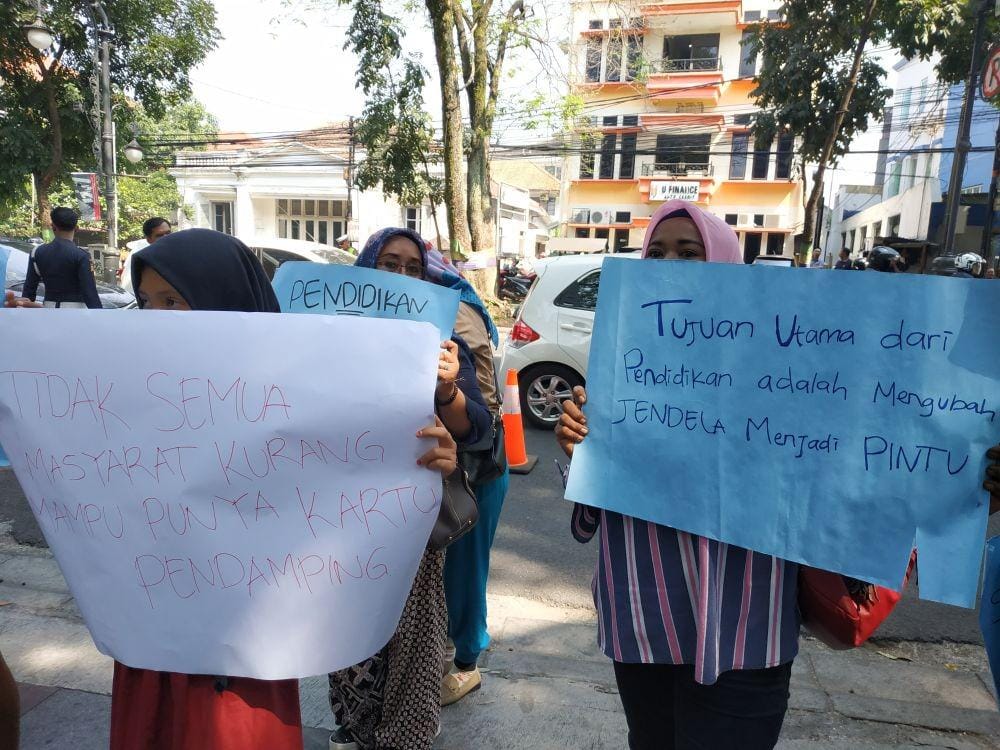 TIDAK SEMUA
MASYARAT KURANG
MAMPU PUNYA KARTU
PENDAMPING
PENDIDIKAN
Tujuan Utama dari
Pendidikan adalah Mengubah
JENDELA Menjadi PINTU
U FINANCE